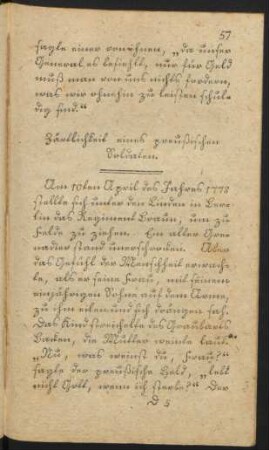 57
sagte einer von ihnen, „da unser
General es befiehlt, nur für Geld
muß man von uns nichts fordern,
was wir ohnehin zu leisten schul-
dig sind.“
Zärtlichkeit eines preußischen
Soldaten.
Am 10ten April des Jahres 1778
stellte sich unter den Linden in Ber-
lin das Regiment Braun, um zu
Felde zu ziehen. Ein alter Gre-
nadier stand unerschrocken. Allein
das Gefühl der Menschheit erwach-
te, als er seine Frau, mit seinem
einjährigen Sohne auf dem Arme,
zu ihm und sich drängen sah.
Das Kind streichelte des Graubarts
Backen, die Mutter weinte laut.
„Nu, was weinst du, Frau?“
sagte der preußische Held, „lebt
nicht Gott, wenn ich sterbe?“ Der
D 5